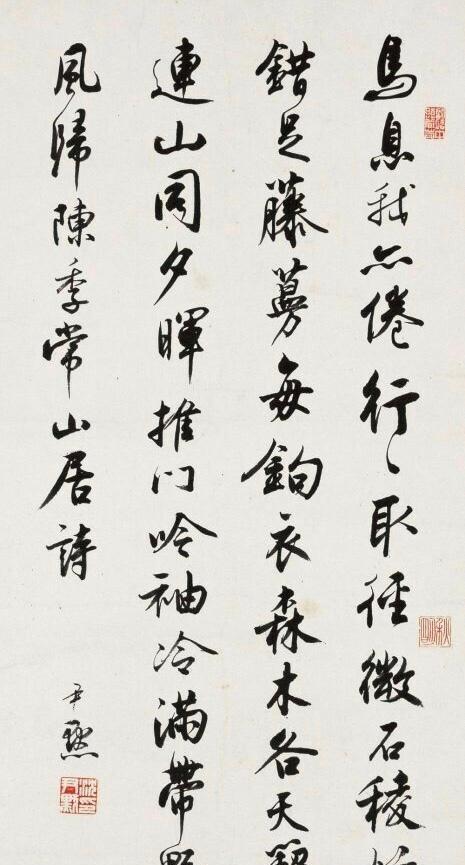 馬息我亦倦行〻取徑微石稜
錯足藤蔓每鉤衣森木各天
連山同夕暉推門吟袖冷滿帶
風歸陳季常山居詩
尹默